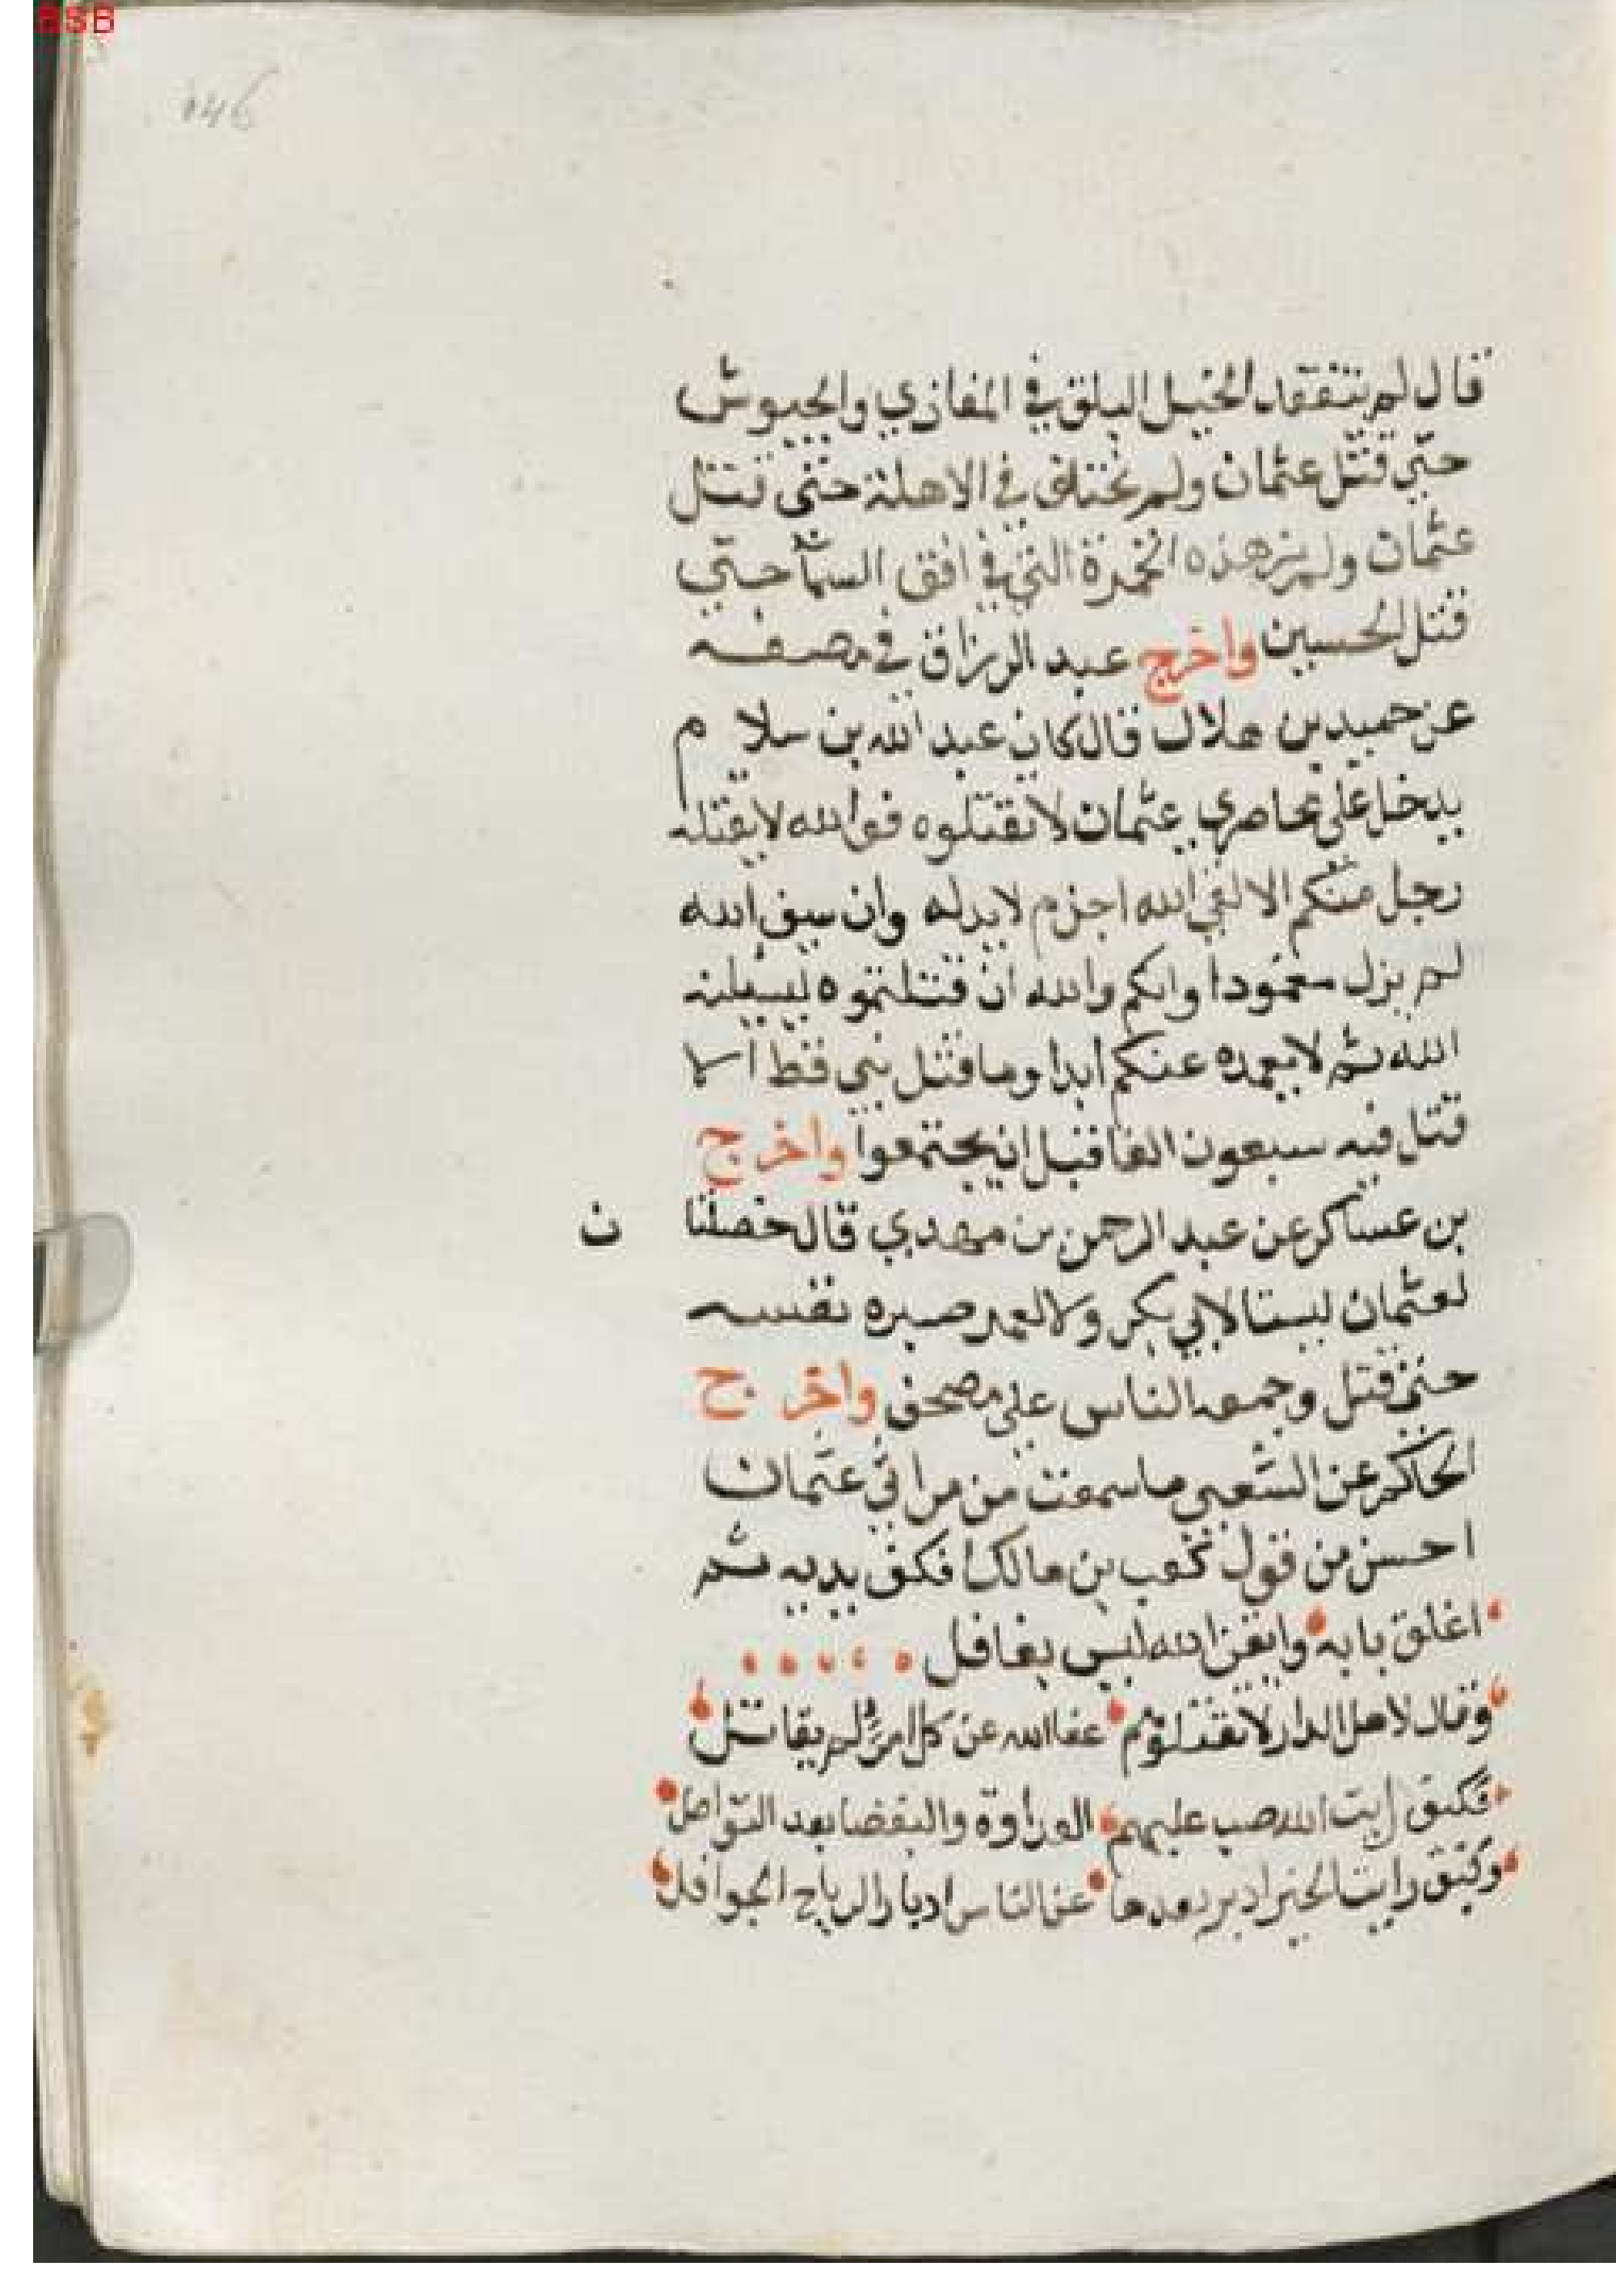 BSB
146
قال لم تتفقد الخيل البلق في المغازي والجيوش
حتى قتل عثمان ولم تختلف في الاهلة حتى قتل
عثمان ولم تر هذه الحمرة التي في افق السمآ حتي
قتل الحسين واخرج عبد الرزاق في مصنفه
عن حميد بن هلال قال كان عبد الله بن سلام
يدخل على محاصري عثمان لا تقتلوه فوالله لا يقتله
رجل منكم الا لقي الله اجزم لا يد له وان سيف الله
لم يزل مغمودا وانكم والله ان قتلتموه ليسيلنه
الله ثم لا يغمده عنكم ابدا وما قتل نبي قط الا
قتل فيه سبعون الفا قبل ان يجتمعوا واخرج
بن عساكر عن عبد الرحمن بن مهدي قال خصلتا ن
لعثمان ليستا لابي بكر ولا لعمر صبره نفسه
حتى قتل وجمعه الناس على مصحف واخرج
الحاكم عن الشعبي ما سمعت من مراثي عثمان
احسن من قول كعب بن مالك فكف يديه ثم
اغلق بابه وايقن الله ليس بغافل
وقال لاهل الدار لا تقتلوهم عفا الله عن كل امرئ لم يقاتل
فكيف رايت الله صب عليهم العداوة والبغضا بعد التواصل
وكيف رايت الخير ادبر بعدها عن الناس ادبار الرياح الجوافل